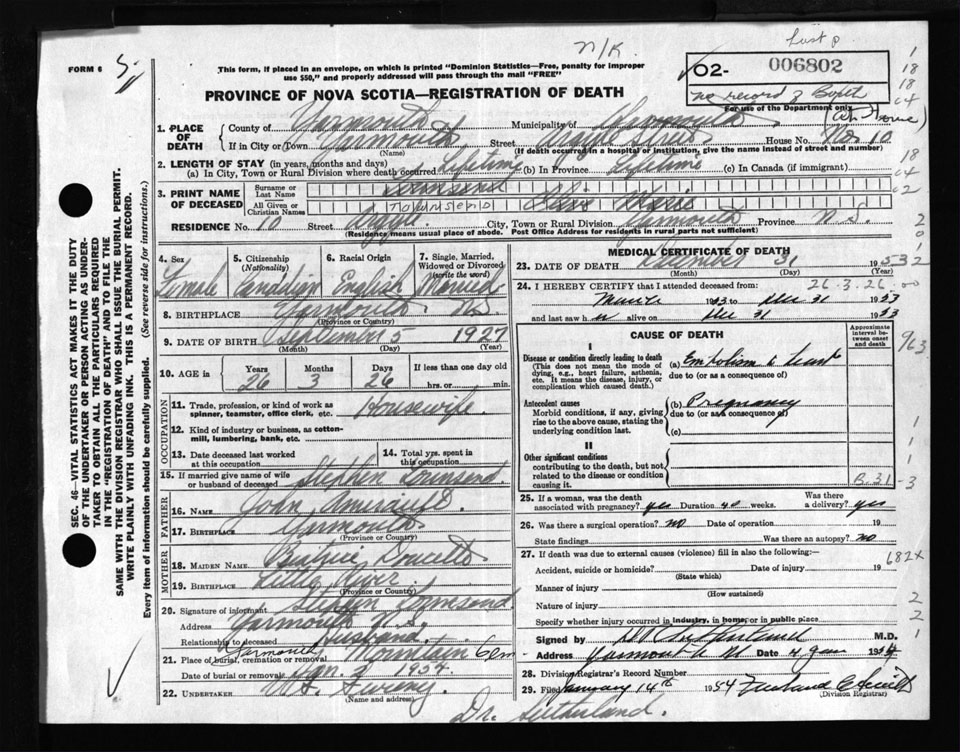 N/K.
FORM 6
This form, if placed in an envelope, on which is printed "Dominion Statistics—Free, penalty for improper
use $50," and properly addressed will pass through the mail "FREE"
02- 006802
no record of Birth
For use of the Department only
PROVINCE OF NOVA SCOTIA—REGISTRATION OF DEATH
(At Home)
1. PLACE OF DEATH
County of Yarmouth Municipality of Yarmouth
If in City or Town Yarmouth Street House No. No. 10
(Name) (If death occurred in a hospital or institution, give the name instead of street and number)
2. LENGTH OF STAY (in years, months and days)
(a) In City, Town or Rural Division where death occurred Lifetime (b) In Province Lifetime (c) In Canada (if immigrant)
3. PRINT NAME OF DECEASED
Surname or Last Name Townsend
All Given or Christian Names TOWNSEND Marie
RESIDENCE No. 10 Street Argyle City, Town or Rural Division Yarmouth Province N.S.
(Residency means usual place of abode. Post Office Address for residents in rural parts not sufficient)
4. Sex Female
5. Citizenship (Nationality) Canadian
6. Racial Origin English
7. Single, Married, Widowed or Divorced (write the word) Married
8. BIRTHPLACE Yarmouth N.S.
(Province or Country)
9. DATE OF BIRTH September 5 1927
(Month) (Day) (Year)
10. AGE in Years 26 Months 3 Days 26 If less than one day old hrs. or min.
OCCUPATION
11. Trade, profession, or kind of work as spinner, teamster, office clerk, etc. Housewife
12. Kind of industry or business, as cotton-mill, lumbering, bank, etc.
13. Date deceased last worked at this occupation
14. Total yrs. spent in this occupation
15. If married give name of wife or husband of deceased Stephen Townsend
FATHER
16. Name John
17. Birthplace Yarmouth
(Province or Country)
MOTHER
18. MAIDEN NAME Doucette
19. BIRTHPLACE Little River
(Province or Country)
20. Signature of informant Stephen Townsend
Address Yarmouth N.S.
Relationship to deceased Husband.
21. Place of burial, cremation or removal Yarmouth Mountain Cem
Date of burial or removal Jan. 3 1954
22. UNDERTAKER Sweeny
(Name and address)
MEDICAL CERTIFICATE OF DEATH
23. DATE OF DEATH December 31 1953
(Month) (Day) (Year)
26.3.26.00
24. I HEREBY CERTIFY that I attended deceased from:
1953 to Dec 31 1953
and last saw h er alive on Dec 31 1953
CAUSE OF DEATH
Approximate interval between onset and death
I
Disease or condition directly leading to death
(This does not mean the mode of dying, e.g., heart failure, asthenia, etc. It means the disease, injury, or complication which caused death.)
(a) Embolism to heart
due to (or as a consequence of)
Antecedent causes
Morbid conditions, if any, giving rise to the above cause, stating the underlying condition last.
(b) Pregnancy
due to (or as a consequence of)
(c)
II
Other significant conditions
contributing to the death, but not related to the disease or condition causing it.
B.31-3
25. If a woman, was the death associated with pregnancy? yes Duration 40 weeks. Was there a delivery? yes
26. Was there a surgical operation? no Date of operation 19
State findings Was there an autopsy? no
27. If death was due to external causes (violence) fill in also the following:—
682X
Accident, suicide or homicide? Date of injury 19
(State which)
Manner of injury
(How sustained)
Nature of injury
Specify whether injury occurred in industry, in home, or in public place
Signed by Sutherland M.D.
Address Yarmouth NS Date 4 Jan 1954
28. Division Registrar's Record Number
29. Filed January 14th 1954
(Division Registrar)
Dr. Sutherland.
SEC. 46—VITAL STATISTICS ACT MAKES IT THE DUTY
OF THE UNDERTAKER OR PERSON ACTING AS UNDER-
TAKER TO OBTAIN ALL THE PARTICULARS REQUIRED
IN THE "REGISTRATION OF DEATH" AND TO FILE THE
SAME WITH THE DIVISION REGISTRAR WHO SHALL ISSUE THE BURIAL PERMIT.
WRITE PLAINLY WITH UNFADING INK. THIS IS A PERMANENT RECORD.
Every item of information should be carefully supplied. (See reverse side for instructions.)